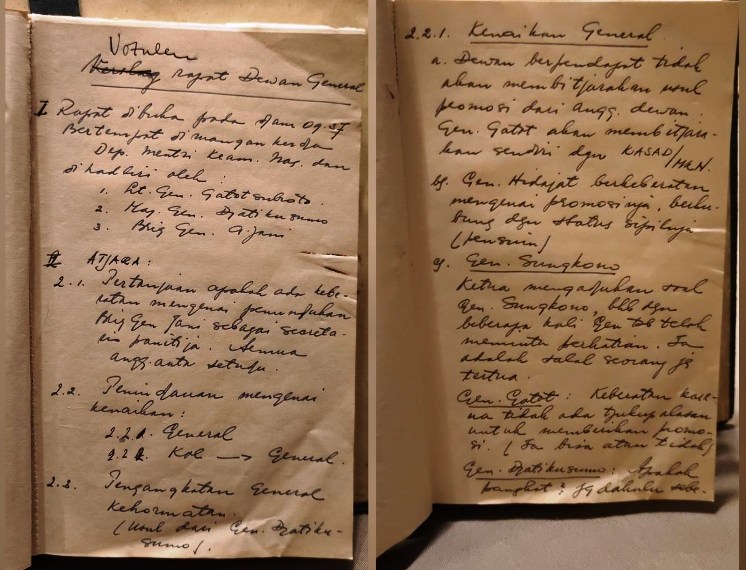 Votulen
Verslag rapat Dewan General
I Rapat dibuka pada djam 09.37
Bertempat di ruangan kerdja
Dep. Mentri Keam. Nas. dan
dihadliri oleh:
1. Lt. Gen. Gatot subroto.
2. Maj. Gen. Djatikusumo
3. Brig Gen. A. Jani
II ATJARA:
2.1. Pertanjaan apakah ada kebe-
ratan mengenai penundjukan
Brig Gen Jani sebagai secreta-
ris panitija. Semua
angg.auta setudju.
2.2. Penindjauan mengenai
kenaikan:
2.2.1. General
2.2.2. Kol → General.
2.3. Pengangkatan General
Kehormatan.
(Usul dari Gen. Djatiku-
sumo).
2.2.1. Kenaikan General.
a. Dewan berpendapat tidak
akan membitjarakan usul
promosi dari angg. dewan.
Gen. Gatot akan membitjara-
kan sendiri dgn KASAD/M.K.N.
b). Gen. Hidajat berkeberatan
mengenai promosinja, berhu-
bung dgn status sipilnja
(pensiun)
c). Gen. Sungkono
Ketua mengadjukan soal
Gen. Sungkono, bhb dgn
beberapa kali Gen tsb telah
meminta perhatian. Ia
adalah salah seorang jg
tertua.
Gen. Gatot: Keberatan kare-
na tidak ada tjukup alasan
untuk memberikan promo-
si. (Ia bisa atau tidak)
Gen. Djatikusumo: Apakah
pangkat jg dahulu sebe-